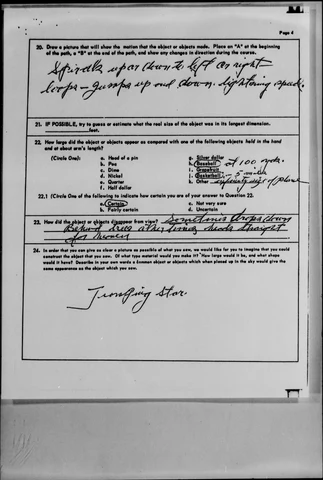 Page 4
20. Draw a picture that will show the motion that the object or objects made. Place an "A" at the beginning
of the path, a "B" at the end of the path, and show any changes in direction during the course.
Spirals up or down to left or right
loops - jumps up and down - lightening speed.
21. IF POSSIBLE, try to guess or estimate what the real size of the object was in its longest dimension.
feet.
22. How large did the object or objects appear as compared with one of the following objects held in the hand
and at about arm's length?
(Circle One):
a. Head of a pin
b. Pea
c. Dime
d. Nickel
e. Quarter
f. Half dollar
g. Silver dollar
h. Baseball at 100 yards.
i. Grapefruit
j. Basketball - 5 miles
k. Other
22.1 (Circle One of the following to indicate how certain you are of your answer to Question 22.
a. Certain
b. Fairly certain
c. Not very sure
d. Uncertain
23. How did the object or objects disappear from view? Sometimes drops down
Behind trees other times heads straight
for
24. In order that you can give as clear a picture as possible of what you saw, we would like for you to imagine that you could
construct the object that you saw. Of what type material would you make it? How large would it be, and what shape
would it have? Describe in your own words a common object or objects which when placed up in the sky would give the
same appearance as the object which you saw.
Star.